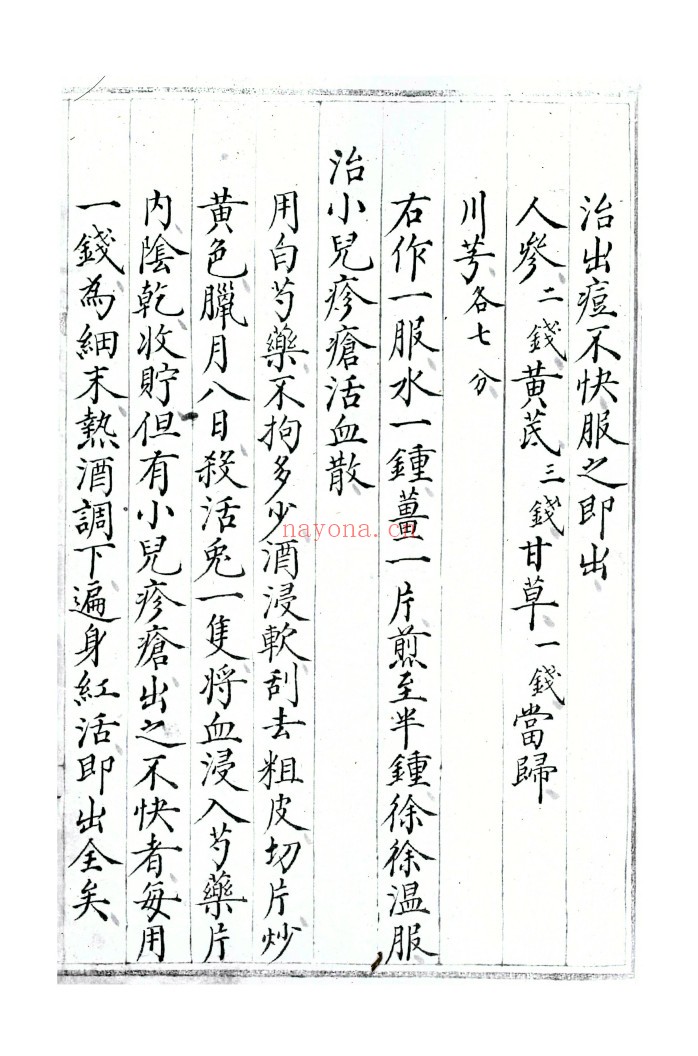 治出痘不快服之即出
人參二錢黃芪三錢甘草一錢當歸
川芎各七分
右作一服水一鍾薑二片煎至半鍾徐徐溫服
治小兒疹瘡活血散
用白芍藥不拘多少酒浸軟刮去粗皮切片炒
黃色臘月八日殺活兎一隻將血浸入芍藥片
內陰乾收貯但有小兒疹瘡出之不快者每用
一錢為細末熱酒調下遍身紅活即出全矣
nayona.cn